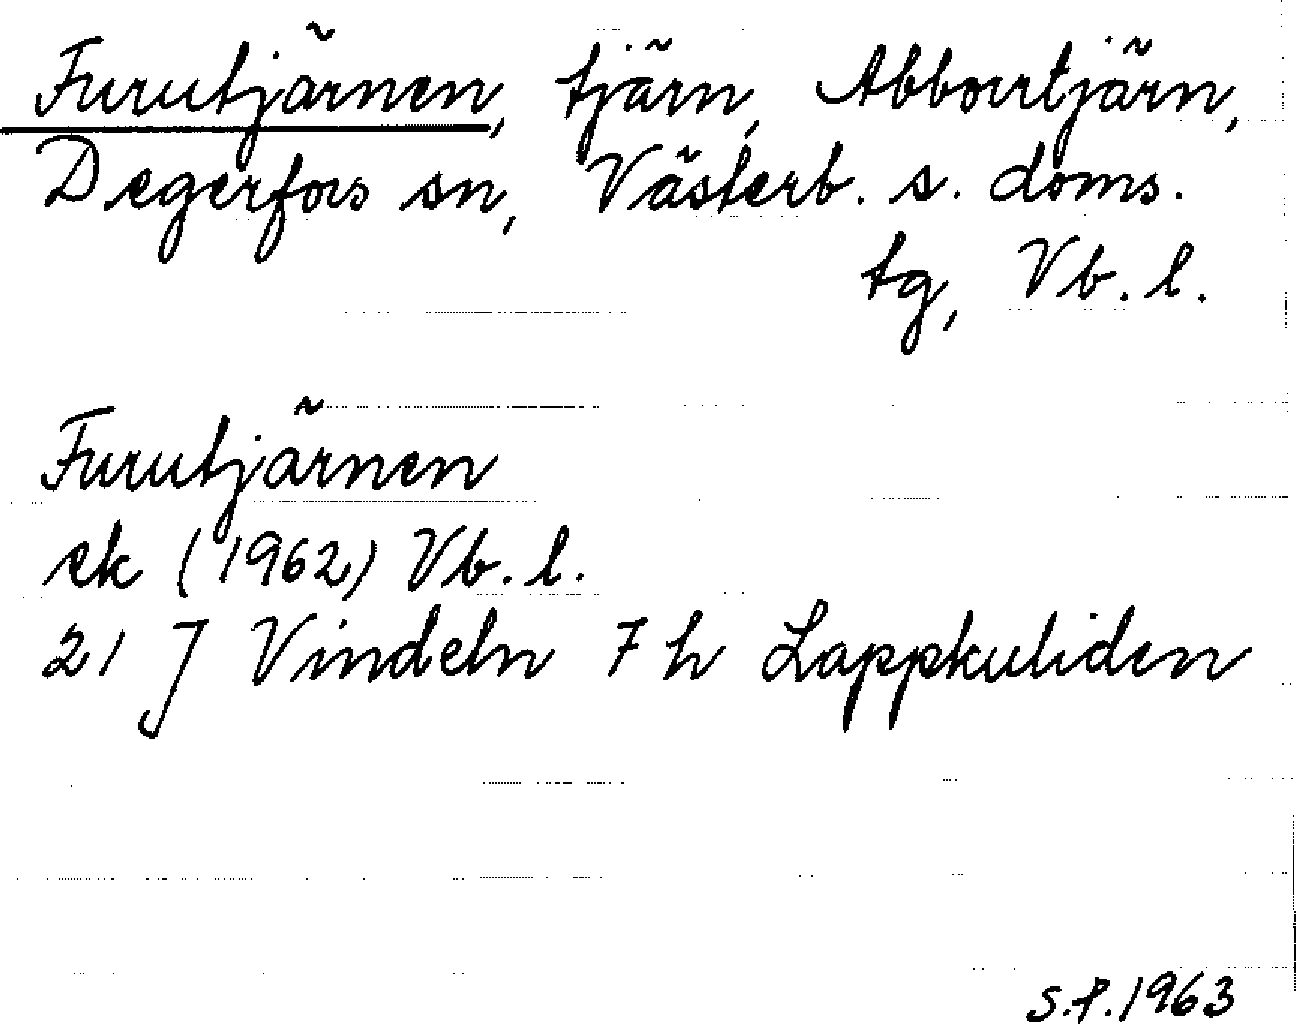 Furutjärnen, tjärn, Abborrtjärn,
Degerfors sn, Västerb. s. doms.
tg, Vb. l.
Furutjärnen
ek (1962) Vb. l.
21 J Vindeln 7 h Lappkuliden
S.P. 1963